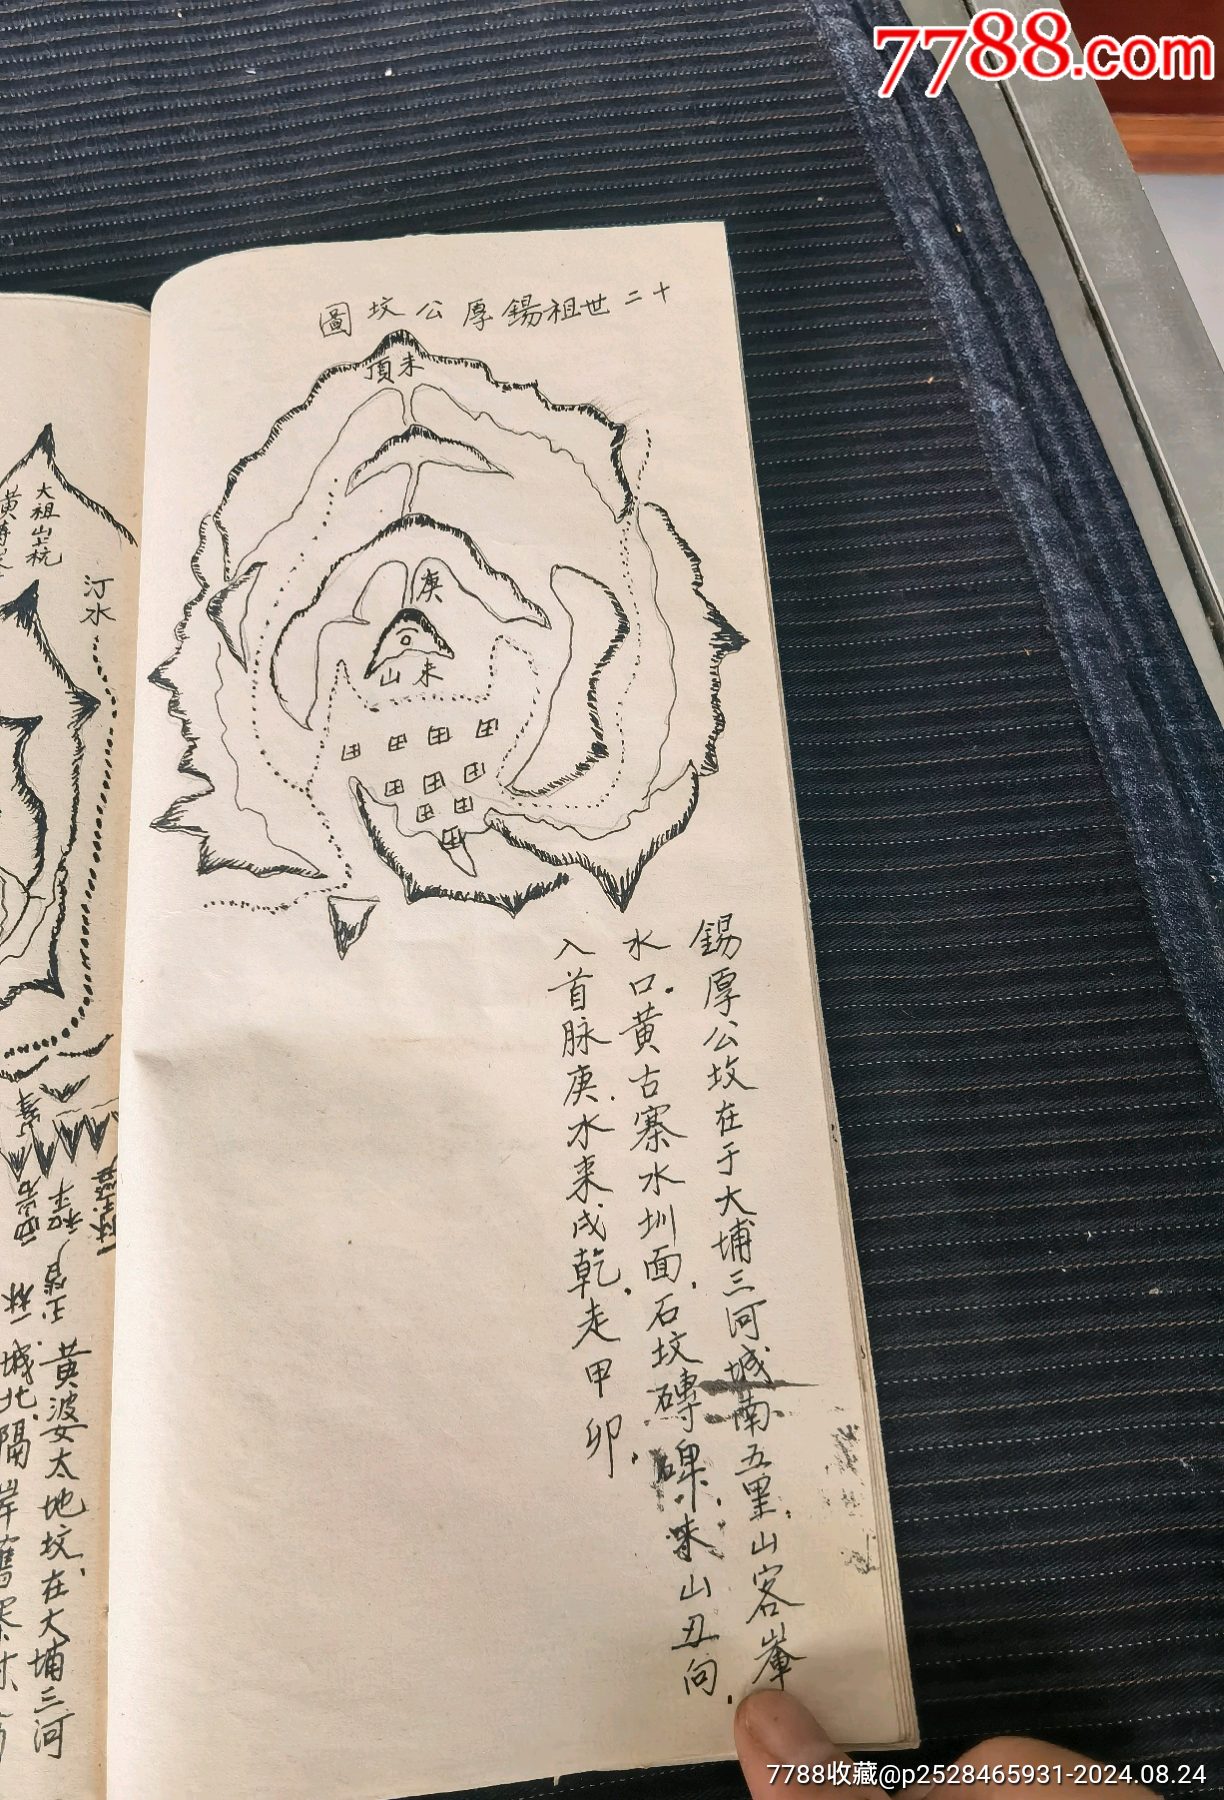 7788.com
十二世祖錫厚公坟圖
未頂
庚
未山
田 田 田 田
田 田 田
田 田
田
錫厚公坟在于大埔三河城南五里,山客崋
水口,黄古寨水圳面,石坟磚碑,未山丑向,
入首脉庚,水来戌乾,走甲卯,
大祖山杭
黄
汀水
黄婆太地坟,在大埔三河
城北隔岸舊寨
7788收藏@p2528465931-2024.08.24